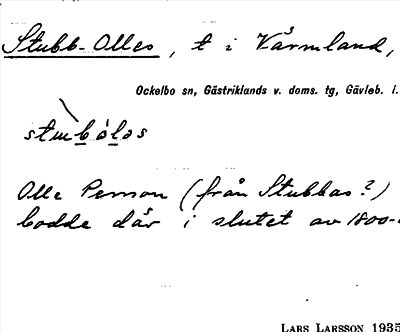 Stubb-Olles, t i Värmland,
Ockelbo sn, Gästriklands v. doms. tg, Gävleb. l.
Olle Person (från Stubbas?)
bodde där i slutet av 1800-
LARS LARSSON 1935